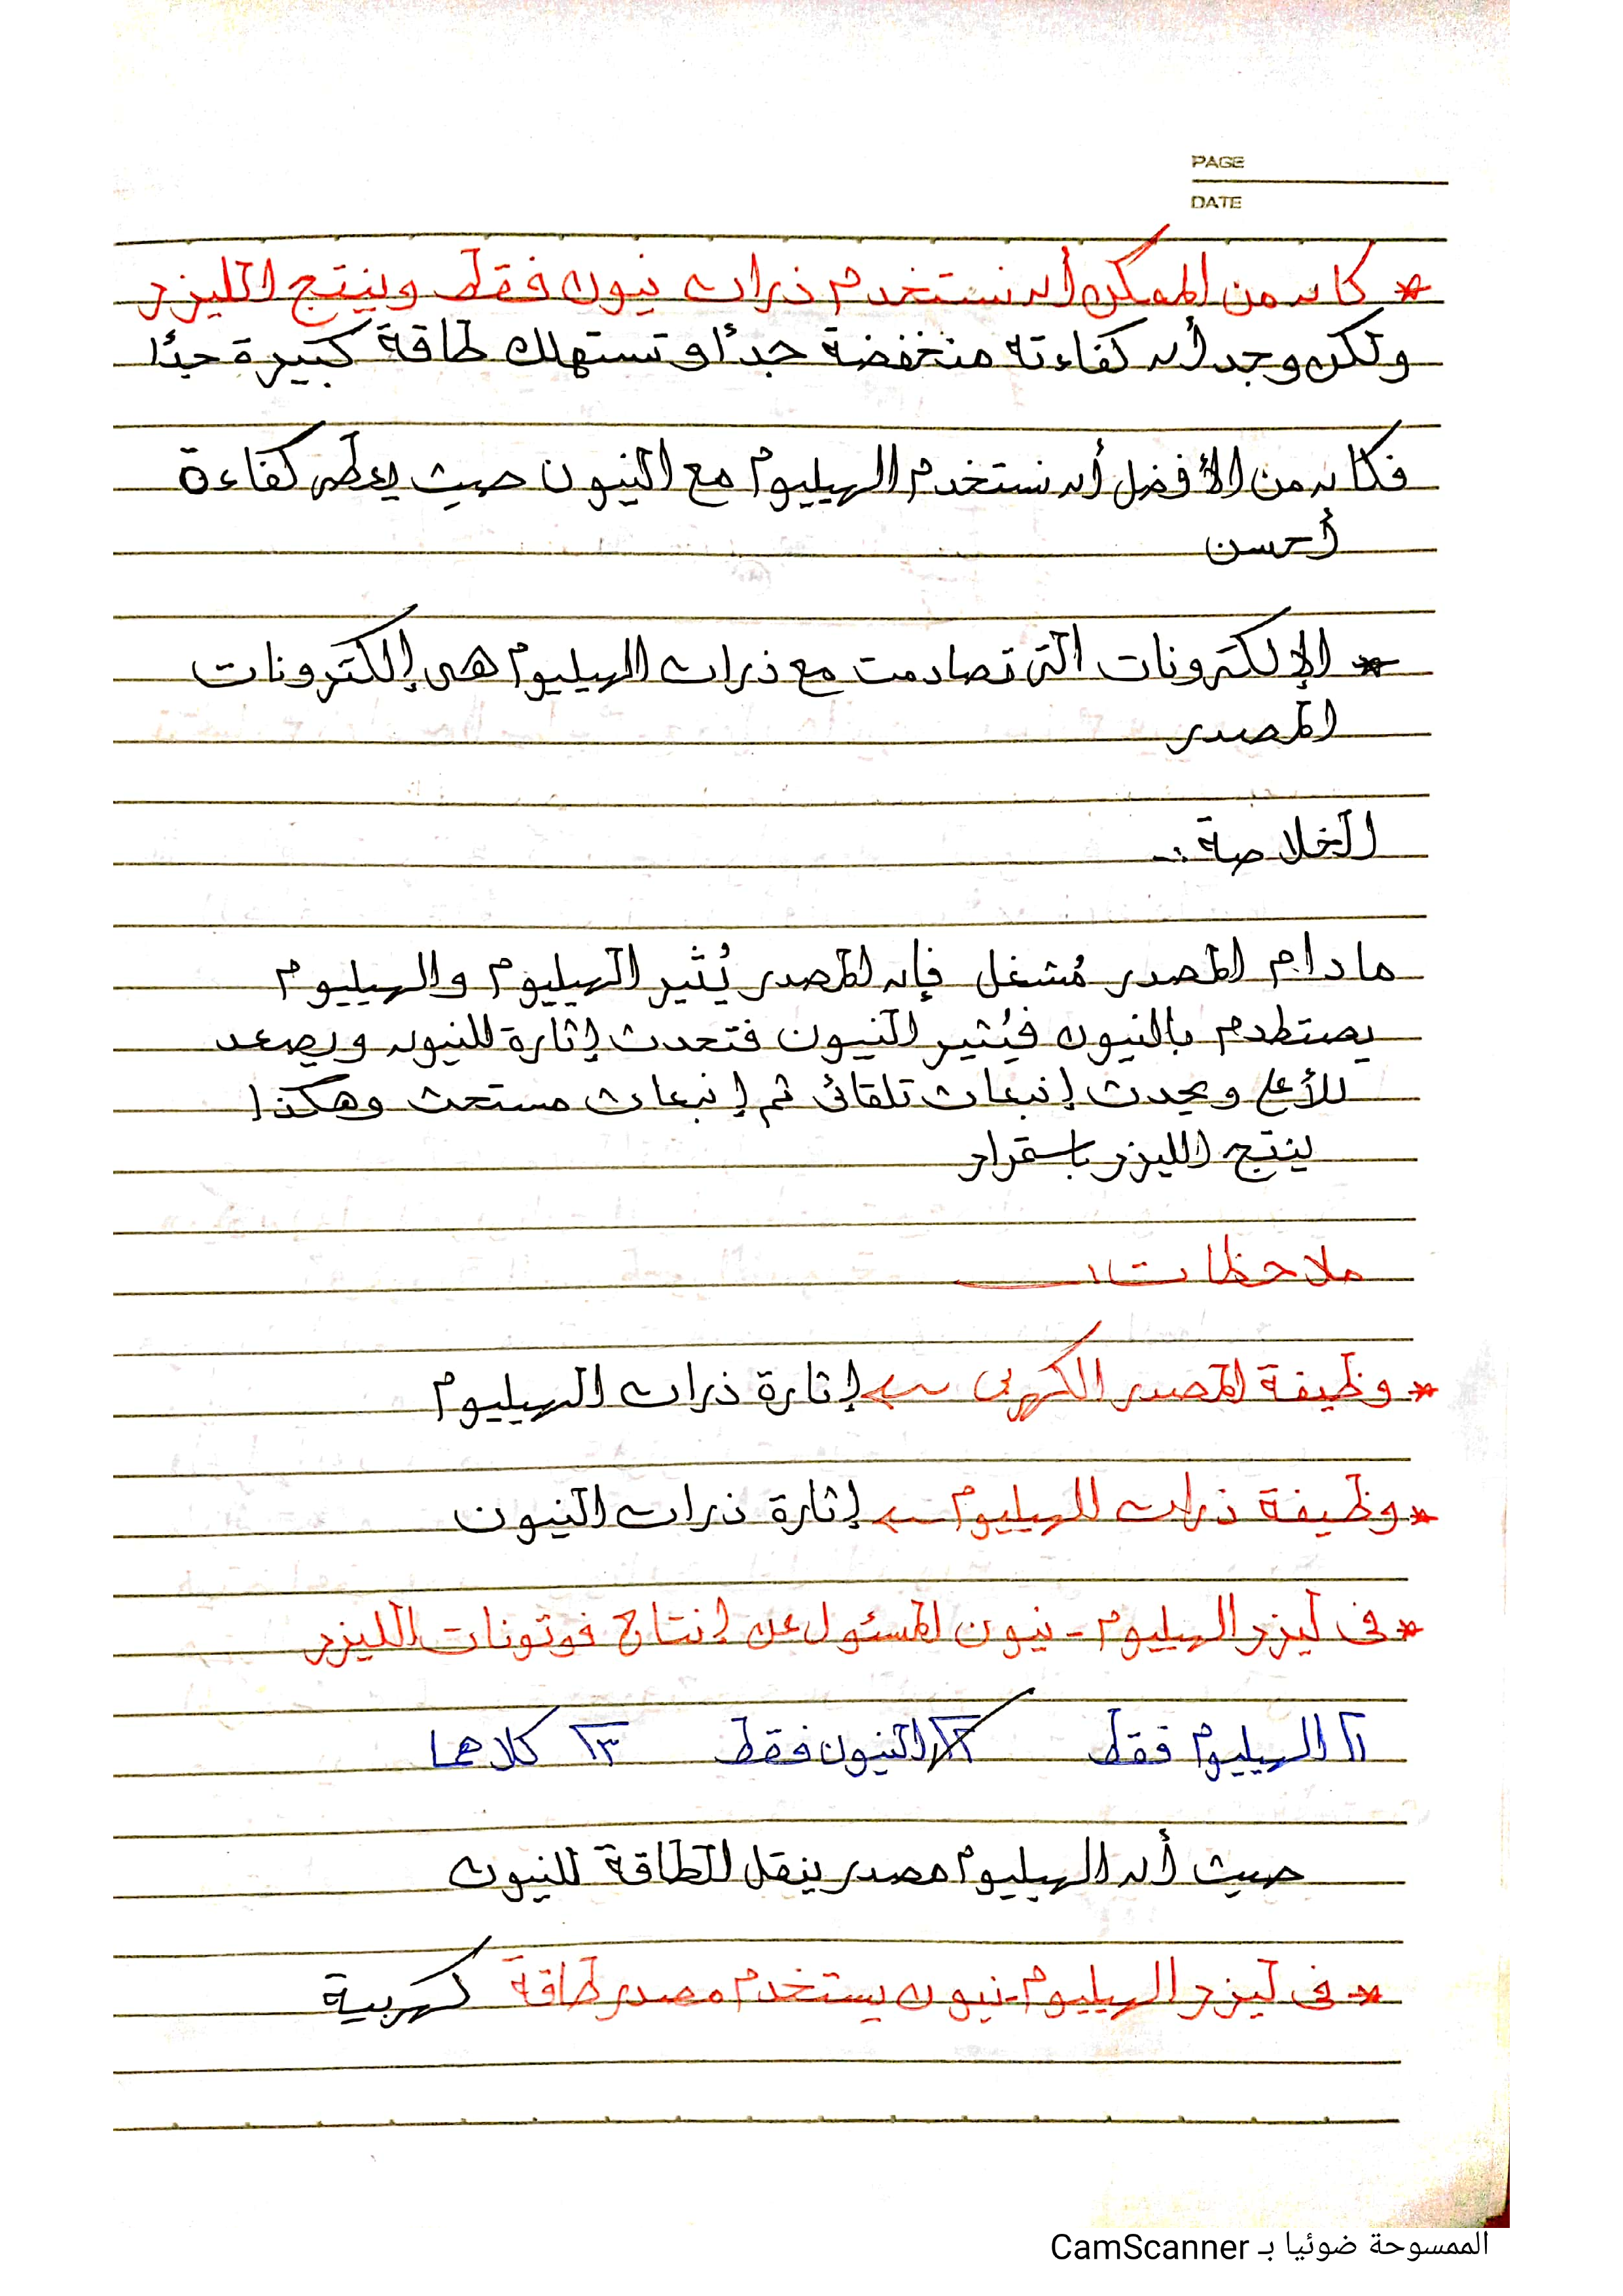 PAGE
DATE
* كان من الممكن أن نستخدم ذرات نيون فقط وينتج الليزر
ولكن وجد أن كفاءته منخفضة جدًا و تستهلك طاقة كبيرة جدًا
فكان من الأفضل أن نستخدم الهيليوم مع النيون حيث يعطى كفاءة
أحسن
* الإلكترونات التى تصادمت مع ذرات الهيليوم هى إلكترونات
المصدر
الخلاصة :-
ما دام المصدر مُشغل فإن المصدر يُثير الهيليوم والهيليوم
يصتطدم بالنيون فيُثير النيون فتحدث إثارة للنيون ويصعد
للأعلى ويحدث إنبعاث تلقائى ثم إنبعاث مستحث وهكذا
ينتج الليزر باستمرار
ملاحظات:
* وظيفة المصدر الكهربى ← إثارة ذرات الهيليوم
* وظيفة ذرات الهيليوم ← إثارة ذرات النيون
* فى ليزر الهيليوم - نيون المسئول عن إنتاج فوتونات الليزر
١ الهيليوم فقط ٢ النيون فقط ٣ كلاهما
حيث أن الهيليوم مصدر ينقل الطاقة للنيون
* فى ليزر الهيليوم-نيون يستخدم مصدر طاقة كهربية
الممسوحة ضوئيا بـ CamScanner